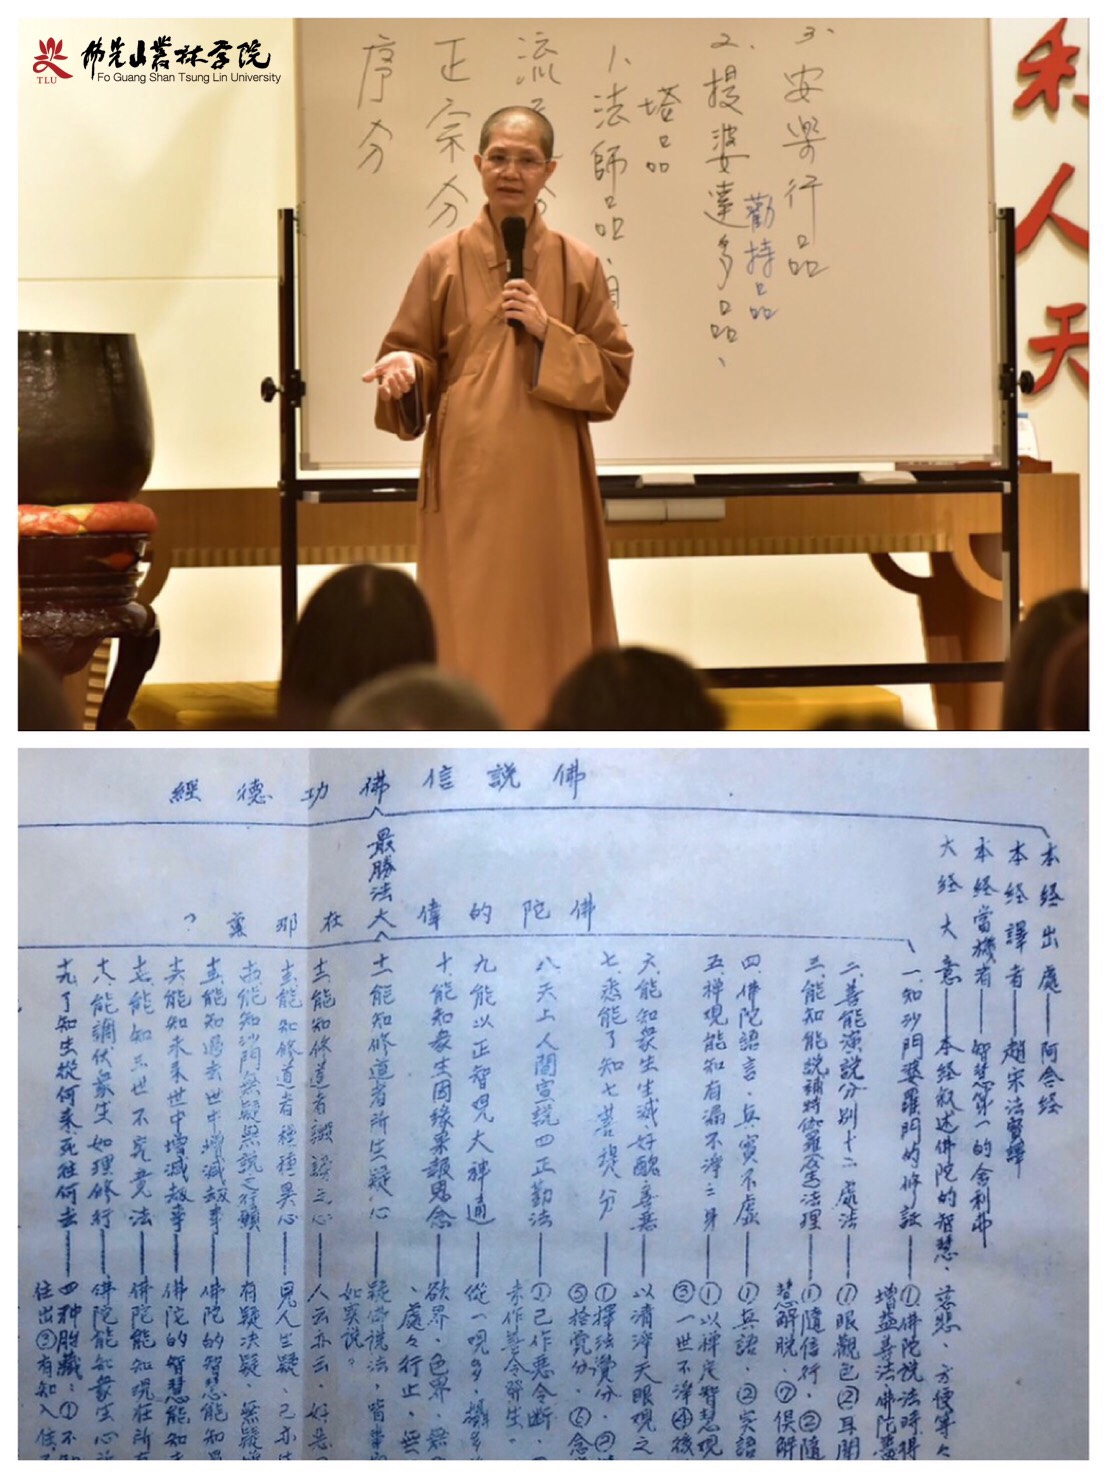 佛光山叢林学院
TLU
Fo Guang Shan Tsung Lin University
利
人
天
3、安樂行品
勸持品
2、提婆達多品、
塔品
1、法師品、
流
正宗分
序分
佛說信佛功德經
本経出處——阿含経
本経譯者——趙宋法賢譯
本経當機者——智慧第一的舍利弗
大経大意——本経叙述佛陀的智慧、慈悲、方便等々
最勝法大
佛陀的偉在那裏?
一、知沙門婆羅門的修証——①佛陀說法時得
增益善法佛陀
二、善能演說分別十二處法——①眼觀色②耳聞
三、能知能說補特伽羅法理——①隨信行、②隨
慧解脫、⑦俱解
四、佛陀語言、真實不虛——①真語、②实語
五、禅現能知有漏不淨之身——①以禅定智慧現
③一世不淨④後
六、能知衆生生滅好醜善惡——以清淨天眼現之
七、悉能了知七菩提分——①擇法覺分、②
⑤捨覺分、⑥念
八、天上人間宣說四正勤法——①已作惡令断、
未作善令解生。
九、能以正智現大神通——從一現多、攝多
十、能知衆生因緣果報思念——欲界、色界、無
、處々行止、無
十一、能知修道者所生疑心——疑佛說法、皆
如实說。
十二、能知修道者諂誤之心——人云亦云、好
十三、能知修道者種種異心——見人生疑、己亦
十四、能知沙門無疑無說之行願——有疑决疑、無疑
十五、能知過去世中增減劫事——佛陀的智慧能知
十六、能知未来世中增減劫事——佛陀的智慧能知
十七、能知三世不究竟法——佛陀能知現在所
十八、能調伏衆生如理修行——佛陀能知衆生心
十九、了知生從何来、死往何去——四种胎藏：①不
住出③有知入